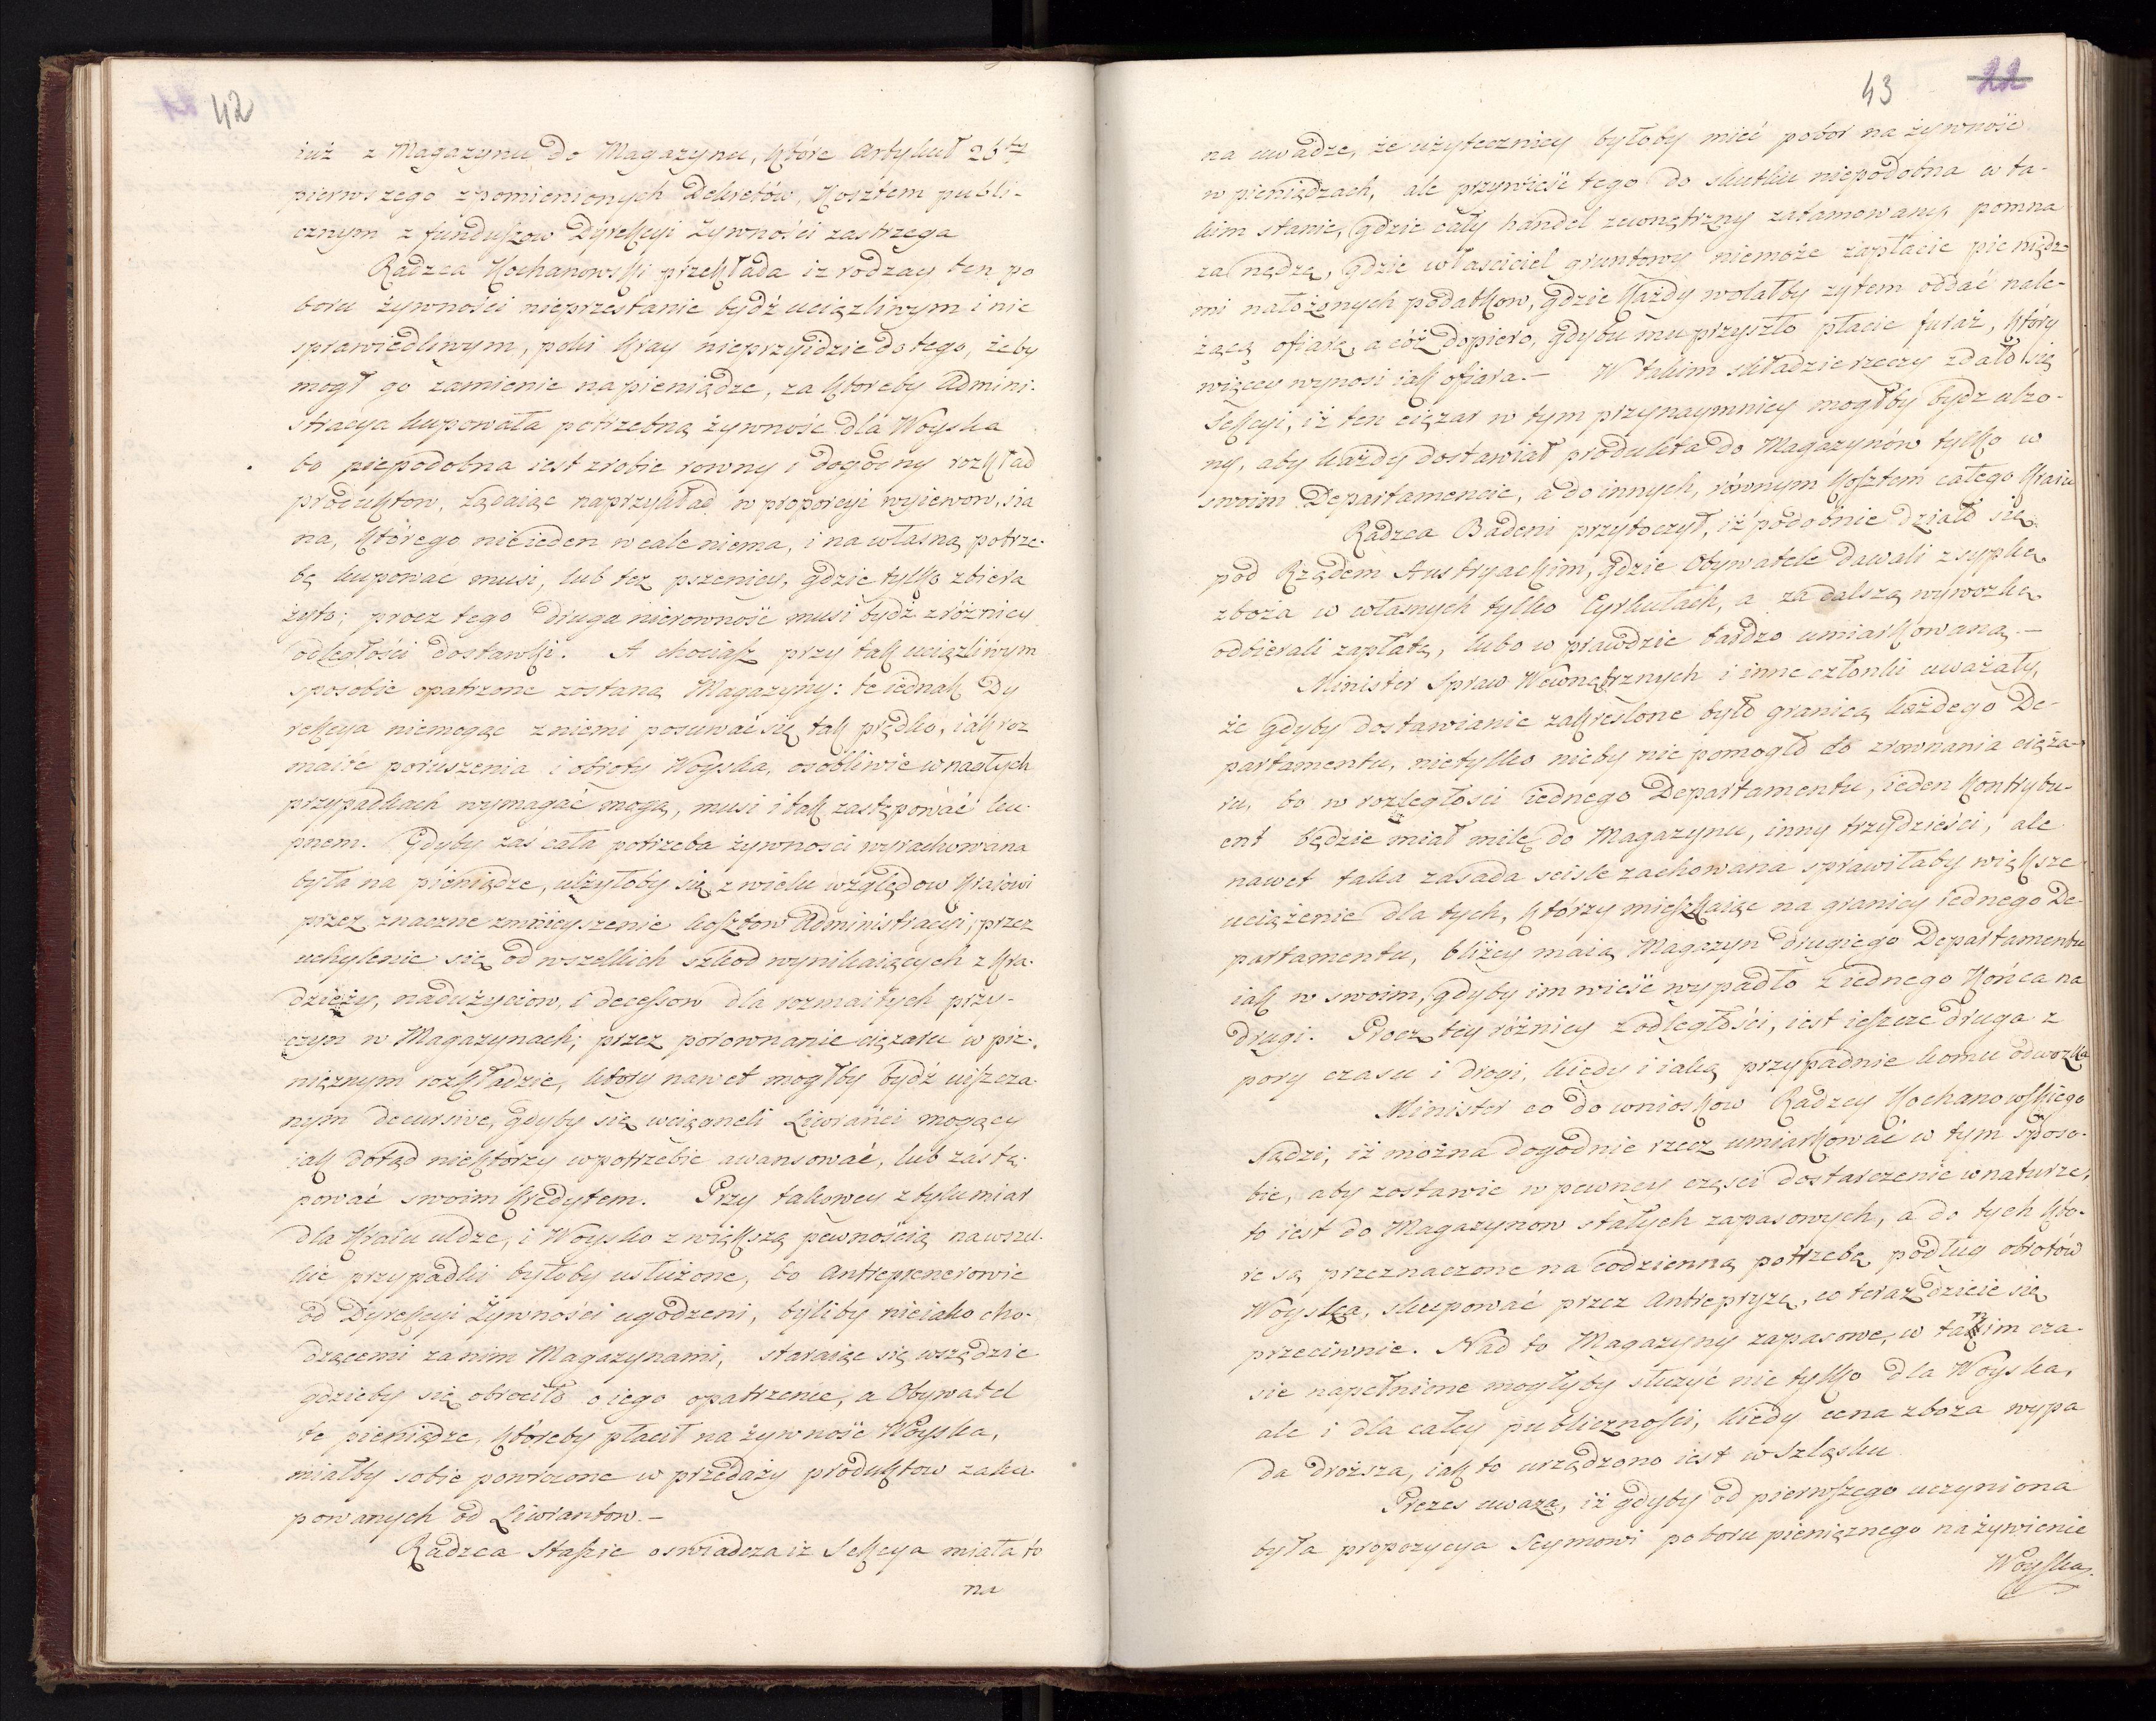 42
iuż z Magazynu do Magazynu, które Artykuł 26ty
pierwszego zpomienionych Dekretów, Kosztem publi-
cznym z funduszow Dyrekcyi Żywności zastrzega
Radzca Kochanowski przekłada iz rodzay ten po
boru żywności nieprzestanie bydź uciązliwym i nie
sprawiedliwym, poki Kray nieprzyidzie do tego, żeby
mogł go zamienie na pieniądze, za któreby Admini-
stracya kupowała potrzebną żywność dla Woyska
bo niepodobna iest zrobic rowny i dogodny rozkład
produktow, żądaiąc naprzykład w proporcyi wysiewow, sia
na, którego nieieden wcale niema, i na własną potrze-
bę kupować musi, lub tez pszenicy, gdzie tylko zbiera
żyto; procz tego druga nierowność musi bydź z różnicy
odległości dostawki. A chociasz przy tak uciązliwym
sposobie opatrzone zostaną Magazyny: te iednak Dy
rekcya niemogąc z niemi posuwać się tak prędko, iak roz
maite poruszenia i obroty Woyska, osobliwie w nagłych
przypadkach wymagać mogą, musi i tak zastępować ku-
pnem. Gdyby zaś cała potrzeba żywności wyrachowana
była na pieniądze, ulżyłoby się z wielu względow Krajowi
przez znaczne zmnieyszenie kosztow Administracyi; przez
uchylenie się od wszelkich szkod wynikaiących z Kra-
dzieży, nadużyciow, i decessow dla rozmaitych przy-
czyn w Magazynach; przez porownanie cięzaru w pie-
nięznym rozkładzie, ktory nawet mogłby bydź uiszcza-
nym decursive, gdyby się wciągneli Liwranci mogący
iak dotąd niektórzy w potrzebie awansować, lub zastę-
pować swoim kredytem. Przy takowey z tylu miar
dla Kraiu uldze, i Woysko z większą pewnością na wszel-
kie przypadki byłoby usłużone, bo Antreprenerowie
od Dyrekcyi Żywności ugodzeni, byliby nieiako cho-
dzącemi za nim Magazynami, staraiąc się wszędzie
gdzieby się obrociło o iego opatrzenie, a Obywatel
te pieniądze, któreby płacił na żywność Woyska,
miałby sobie powrocone w przedaży produktow zaku-
powanych od Liwrantow.-
Radzca Staszic oswiadcza iż Sekcya miała to
na
43 22
na uwadze, że użyteczniey byłoby mieć pobor na żywność
w pieniądzach, ale przywieść tego do skutku niepodobna w ta-
kim stanie, gdzie cały handel zewnętrzny zatamowany, pomna
za nędzę, gdzie własciciel gruntowy niemoże zapłacic pieniędz-
mi nałożonych podatkow, gdzie każdy wolałby zytem oddać nale-
żącą ofiarę, a cóż dopiero, gdyby mu przyszło płacic furaż, który
więcey wynosi iak ofiara.- W takim składzie rzeczy zdało się
Sekcyi, iż ten ciężar w tym przynaymniey mogłby bydz ulżo-
ny, aby każdy dostawiał produkta do Magazynów tylko w
swoim Departamencie, a do innych, równym kosztem całego Kraiu
Radzca Badeni przytoczył, iż podobnie działo się
pod Rządem Austryackim, gdzie Obywatele dawali zsypkę
zboza w własnych tylko Cyrkułach, a za dalszą wywozkę
odbierali zapłatę, lubo w prawdzie bardzo umiarkowaną.-
Minister Spraw Wewnętrznych i inne członki uważały,
że gdyby dostawianie zakreslone było granicą każdego De-
partamentu, nietylko nieby nie pomogło do zrownania cięża-
ru, bo w rozległosci iednego Departamentu, ieden Kontrybu-
ent będzie miał milę do Magazynu, inny trzydzieści, ale
nawet taka zasada scisle zachowana sprawiłaby większe
uciążenie dla tych, którzy mieszkaiąc na granicy iednego De-
partamentu, bliżey maią Magazyn drugiego Departamentu
iak w swoim, gdyby im wieść wypadło z iednego Końca na
drugi. Procz tey różnicy z odległości, iest ieszcze druga z
pory czasu i drogi, kiedy i iaką przypadnie komu odwozka
Minister co do wnioskow Radzcy Kochanowskiego
sądzi, iż można dogodnie rzecz umiarkować w tym sposo-
bie, aby zostawic w pewney częsci dostarczenie w naturze,
to iest do Magazynow stałych zapasowych, a do tych któ-
re są przeznaczone na codzienną potrzebę podług obrotów
Woyska, skupować przez Antrepryzę, co teraz dzieie się
przeciwnie. Nad to Magazyny zapasowe, w tanim cza-
sie napełnione mogłyby służyć nie tylko dla Woyska,
ale i dla całey publiczności, kiedy cena zboża wypa
da droższa, iak to urządzono iest w Szląsku
Prezes uważa, iż gdyby od pierwszego uczyniona
była propozycya Seymowi poboru pienięznego na żywienie
Woyska.